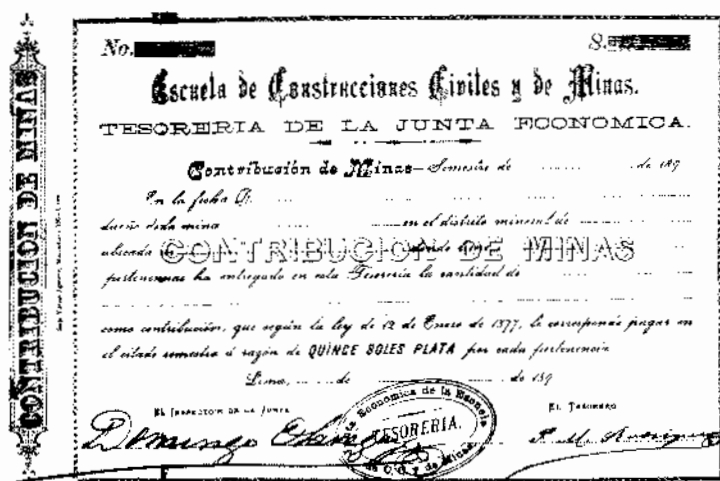 No. S.
Escuela de Construcciones Civiles y de Minas.
TESORERIA DE LA JUNTA ECONOMICA.
Contribución de Minas—Semestre de ........ de 189
En la fecha D. ....
dueño de la mina .... en el distrito mineral de ....
ubicada en .... donde tiene ....
CONTRIBUCION DE MINAS
pertenencias ha entregado en esta Tesorería la cantidad de ....
como contribución, que según la ley de 12 de Enero de 1877, le corresponde pagar en
el citado semestre á razón de QUINCE SOLES PLATA por cada pertenencia
Lima, .... de .... de 189
EL INSPECTOR DE LA JUNTA
EL TESORERO
Económica de la Escuela
TESORERÍA.
de C. C. y de Minas
Domingo
CONTRIBUCION DE MINAS